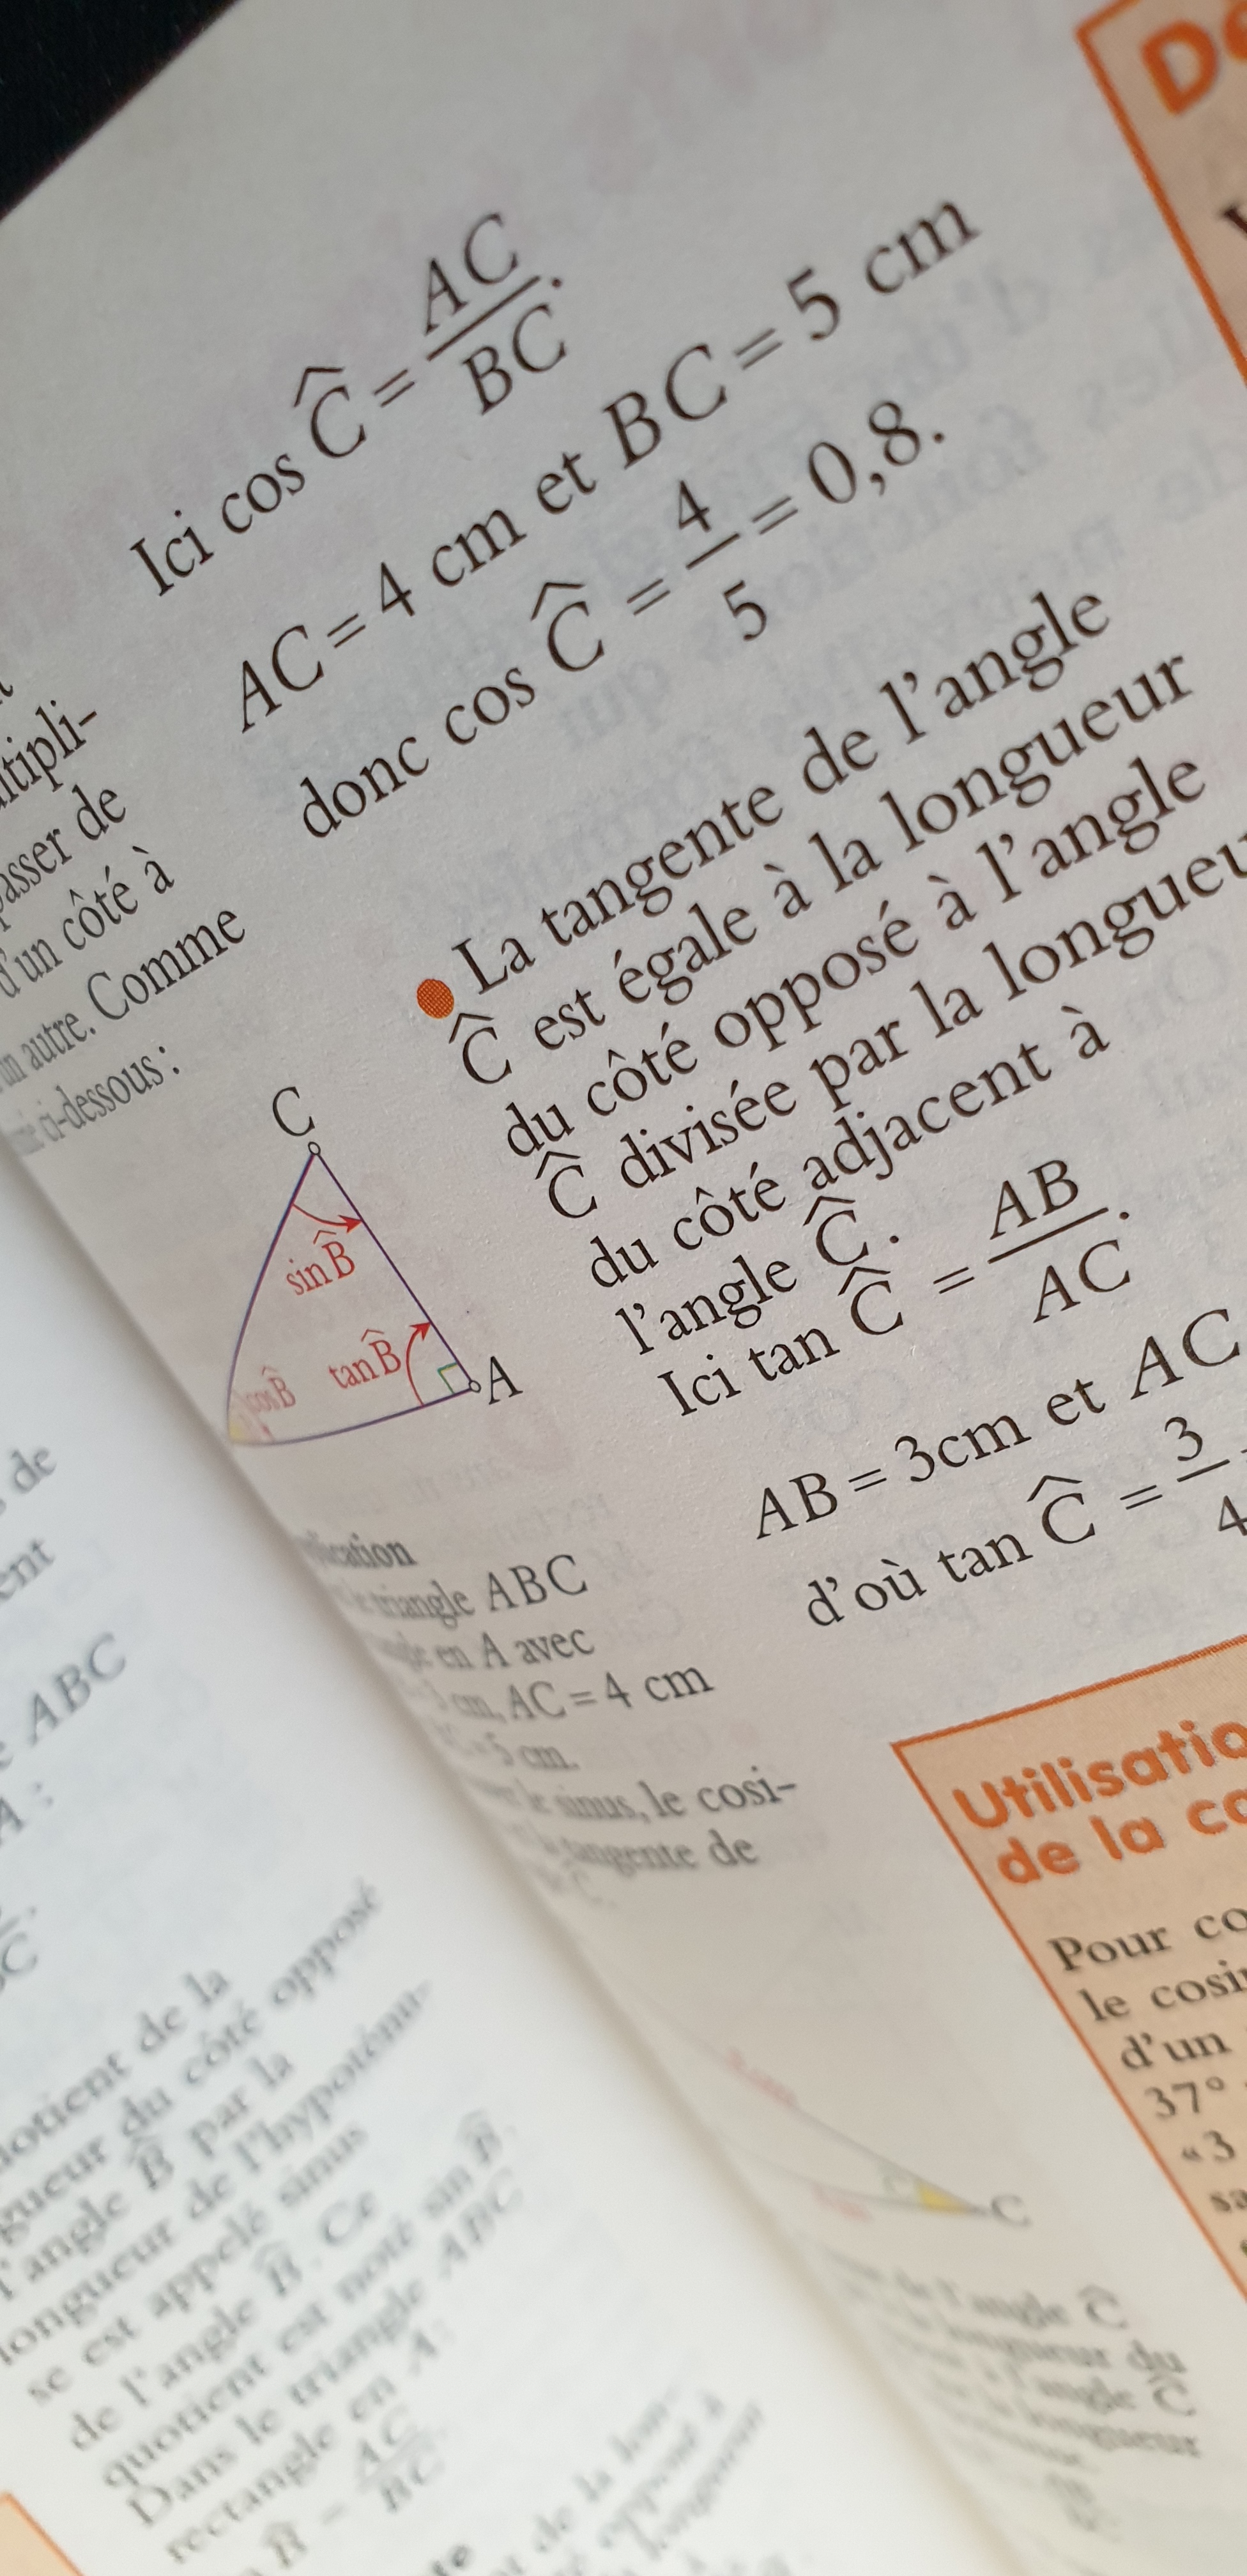 Dé
Ici cos Ĉ = AC/BC.
AC = 4 cm et BC = 5 cm
donc cos Ĉ = 4/5 = 0,8.
• La tangente de l'angle
Ĉ est égale à la longueur
du côté opposé à l'angle
Ĉ divisée par la longueu
du côté adjacent à
l'angle Ĉ.
Ici tan Ĉ = AB/AC.
AB = 3cm et AC
d'où tan Ĉ = 3/4
Utilisatio
de la ca
Pour co
le cosi
d'un
37°
« 3
sa
ltipli-
passer de
d'un côté à
un autre. Comme
ci-dessous :
C
sin B̂
tan B̂
cos B̂
A
triangle ABC
en A avec
cm, AC = 4 cm
= 5 cm.
le sinus, le cosi-
tangente de
Ĉ.
C
de l'angle Ĉ
longueur du
à l'angle Ĉ
longueur
de
ent
ABC
A :
otient de la
gueur du côté opposé
l'angle B̂ par la
longueur de l'hypoténu-
se est appelé sinus
de l'angle B̂. Ce
quotient est noté sin B̂.
Dans le triangle ABC
rectangle en A :
B̂ = AC/BC